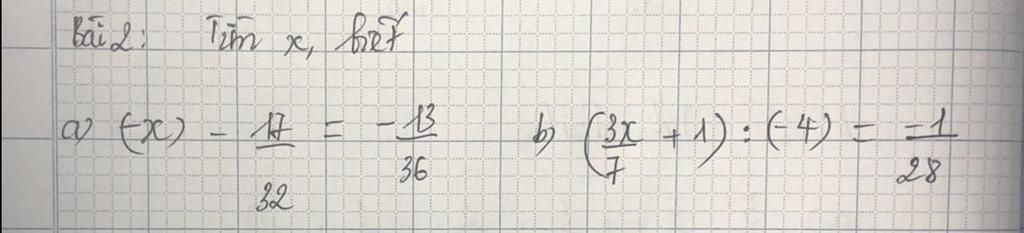 Bài 2: Tìm x, biết
a) (-x) - 17/32 = -13/36 b) (3x/7 + 1) : (-4) = -1/28